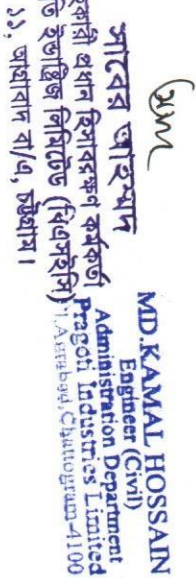 সাবের আহম্মদ
প্রধান হিসাবরক্ষণ কর্মকর্তা
ইন্ডাস্ট্রিজ লিমিটেড (বিএসইসি)
আগ্রাবাদ বা/এ, চট্টগ্রাম।
MD.KAMAL HOSSAIN
Engineer (Civil)
Administration Department
Pragoti Industries Limited
Agrabad,Chattogram-4100